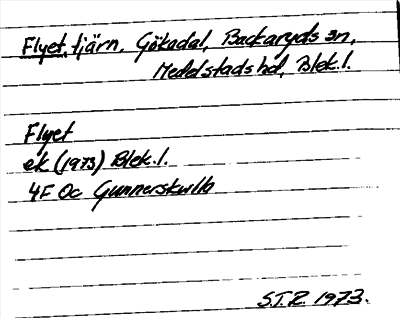 Flyet, tjärn, Gökadal, Backaryds sn,
Medelstads hd, Blek.l.
Flyet
ek (1973) Blek.l.
4F 0c Gunnerskulla
S.T.R. 1973.